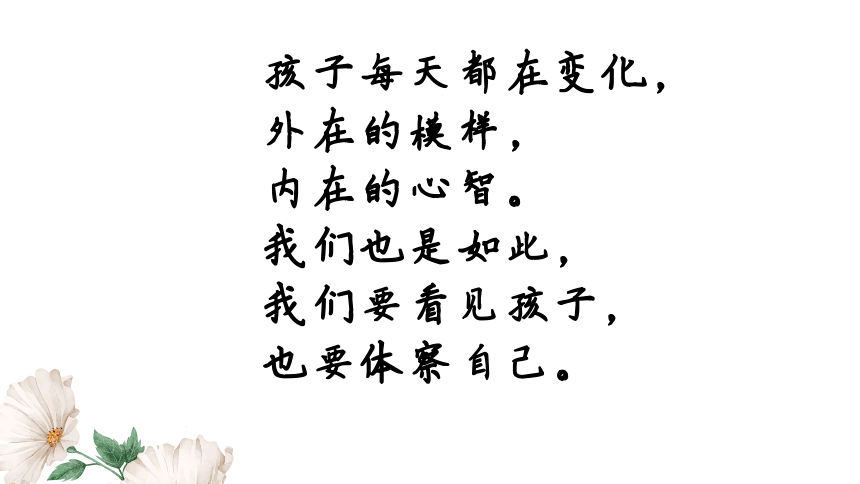 孩子每天都在变化，
外在的模样，
内在的心智。
我们也是如此，
我们要看见孩子，
也要体察自己。